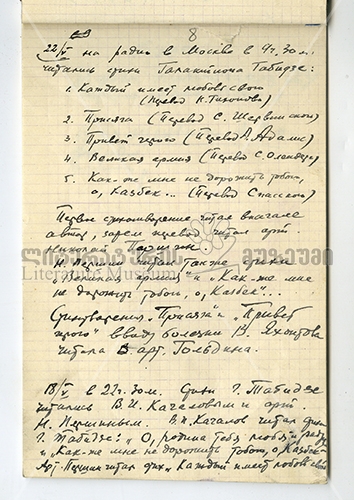 8
22/V на радио в Москве в 9ч. 30 м.
читались стихи Галактиона Табидзе:
1. Каждый имеет любовь свою
(Перевод Н. Тихонова)
2. Присяга (Перевод С. Шервинской)
3. Привет герою (Перевод А. Адалис)
4. Великая армия (Перевод С. Олендера)
5. Как-же мне не дорожить тобою,
о, Казбек... (Перевод Спасской)
Первое стихотворение читал вначале
автор, затем перевод читал арт.
Николай Першин
Н. Першин читал также стихи
„Великая армия" и „Как-же мне
не дорожить тобою, о, Казбек"...
Стихотворения „Присяга" и „Привет
герою" ввиду болезни В. Яхонтова
читала арт. Гольдина.
ლიტერატურის მუზეუმი
Literature Museum
18/V в 22ч. 30м. стихи Г. Табидзе
читались В. И. Качаловым и арт.
Н. Першиным. В. И. Качалов читал стихи
Г. Табидзе: „О, родина тебя любя и
и „Как-же мне не дорожить тобою, о, Казбек"
Арт. Першин читал стих. „Каждый имеет любовь